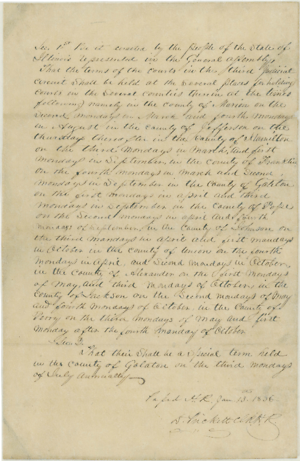 Sec 1st Be it enacted by the people of the State of
Illinois represented in the General Assembly
That the terms of the courts in the third Judicial
Circuit Shall be held at the several places for holding
Courts in the several counties therein at the times
following namely in the county of Marion on the
second mondays in March and fourth mondays
in August in the county of Jefferson on the
thursdays thereafter in the County of Hamilton
on the third Mondays in march and first
mondays in September in the county of Franklin
on the fourth mondays in march and Second
mondays in September in the County of Gallatin
on the first mondays in april and third
mondays in September in the county of Pope
on the Second mondays in april and fourth
mondays of September in the County of Johnson on
the third mondays in April and first mondays
in October in the county of Union on the fourth
mondays in april and Second mondays in October
in the County of Alexander on the first Mondays
of may and third mondays of October in the
County of Jackson on the Second mondays of may
and fourth mondays of October in the County of
Perry on the third mondays of may and first
monday after the fourth monday of October
Sec 2
That their Shall be a Special term held
in the county of Gallatin on the third mondays
of July annually
Passed H.R. Jan 1836
D. Prickett Clk H.R.